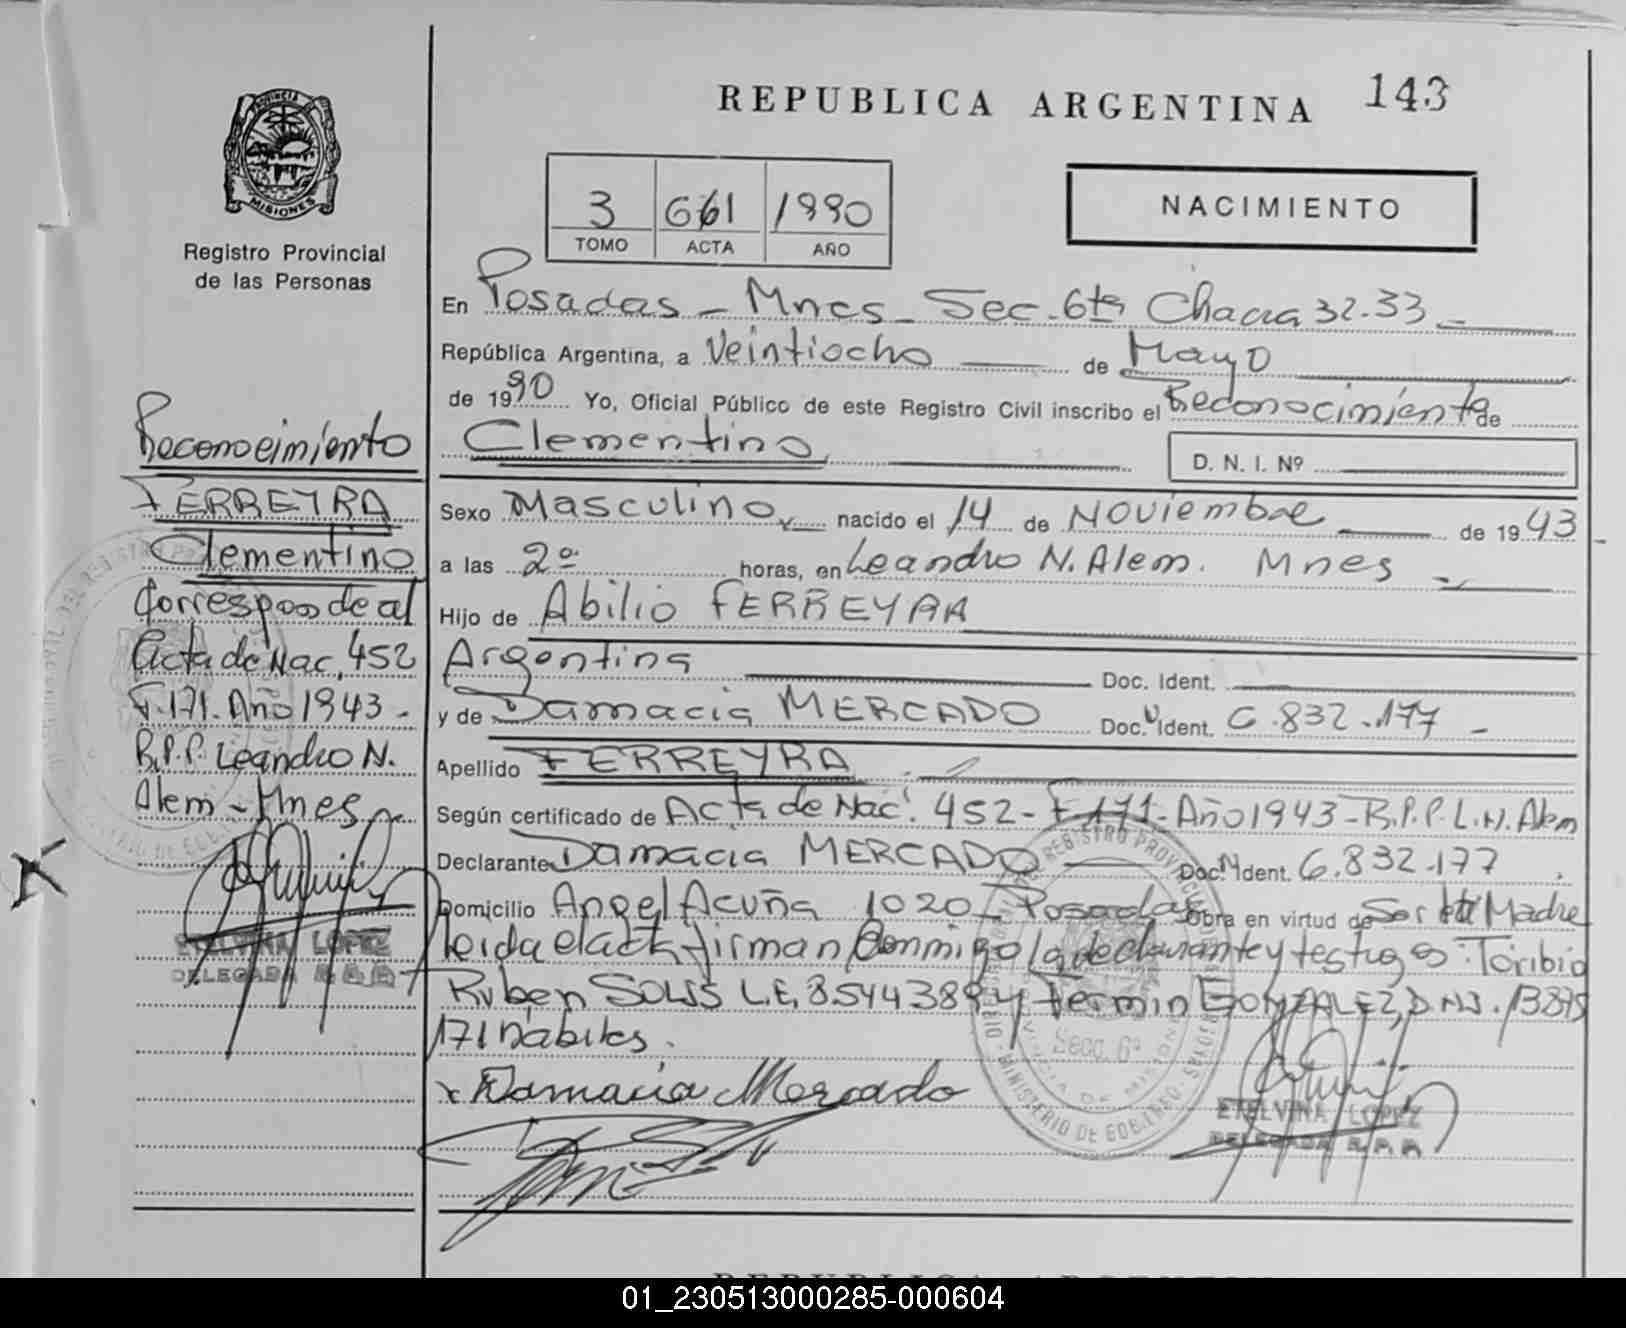 REPUBLICA ARGENTINA 143
PROVINCIA DE
MISIONES
Registro Provincial
de las Personas
3 661 1990
TOMO ACTA AÑO
NACIMIENTO
En Posadas - Mnes - Sec. 6ta Chacra 32-33
República Argentina, a Veintiocho de Mayo
de 1990 Yo, Oficial Público de este Registro Civil inscribo el Reconocimiento de
Clementino D. N. I. Nº
Sexo Masculino nacido el 14 de Noviembre de 1943
a las 2º horas, en Leandro N. Alem. Mnes
Hijo de Abilio FERREYRA
Argentina Doc. Ident.
y de Damacia MERCADO Doc. Ident. 6.832.177
Apellido FERREYRA
Según certificado de Acta de Nac. 452-F 171-Año 1943-R.P.P. L.N. Alem
Declarante Damacia MERCADO Doc. Ident. 6.832.177
Domicilio Angel Acuña 1020 - Posadas Obra en virtud de Ser la Madre
leida el acta firman conmigo la declarante y testigos: Toribio
Ruben SOLIS L.E. 8.544.389 y Fermin GONZALEZ, D.N.I. 13895
171 habiles.
Damacia Mercado
ETELVINA LOPEZ
DELEGADA R.A.A
Secc. 6º
Reconocimiento
FERREYRA
Clementino
Corresponde al
acta de Nac. 452
F. 171. Año 1943-
R.P.P. Leandro N.
Alem - Mnes
ETELVINA LOPEZ
DELEGADA R.A.A
REPUBLICA ARGENTINA
01_230513000285-000604